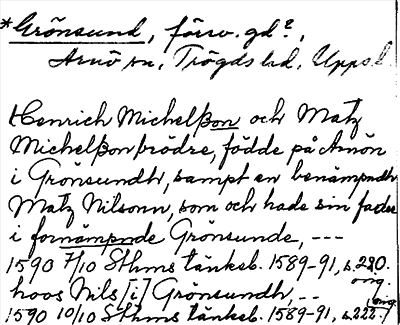 *Grönsund, försv. gd?,
Arnö sn, Trögds hd, Upps.l.
Henrich Michelßon och Matz
Michelßon brödre, födde på Arnön
i Grönsundh, sampt en benämpndh
Matz Nilsonn, som och hade sin fader
i fornämpnde Grönsunde, ---
1590 7/10 Sthms tänkeb. 1589-91, s. 220.
orig.
hoos Nils [i] Grönsundh, --
1590 10/10 Sthms tänkeb. 1589-91, s. 222. orig.